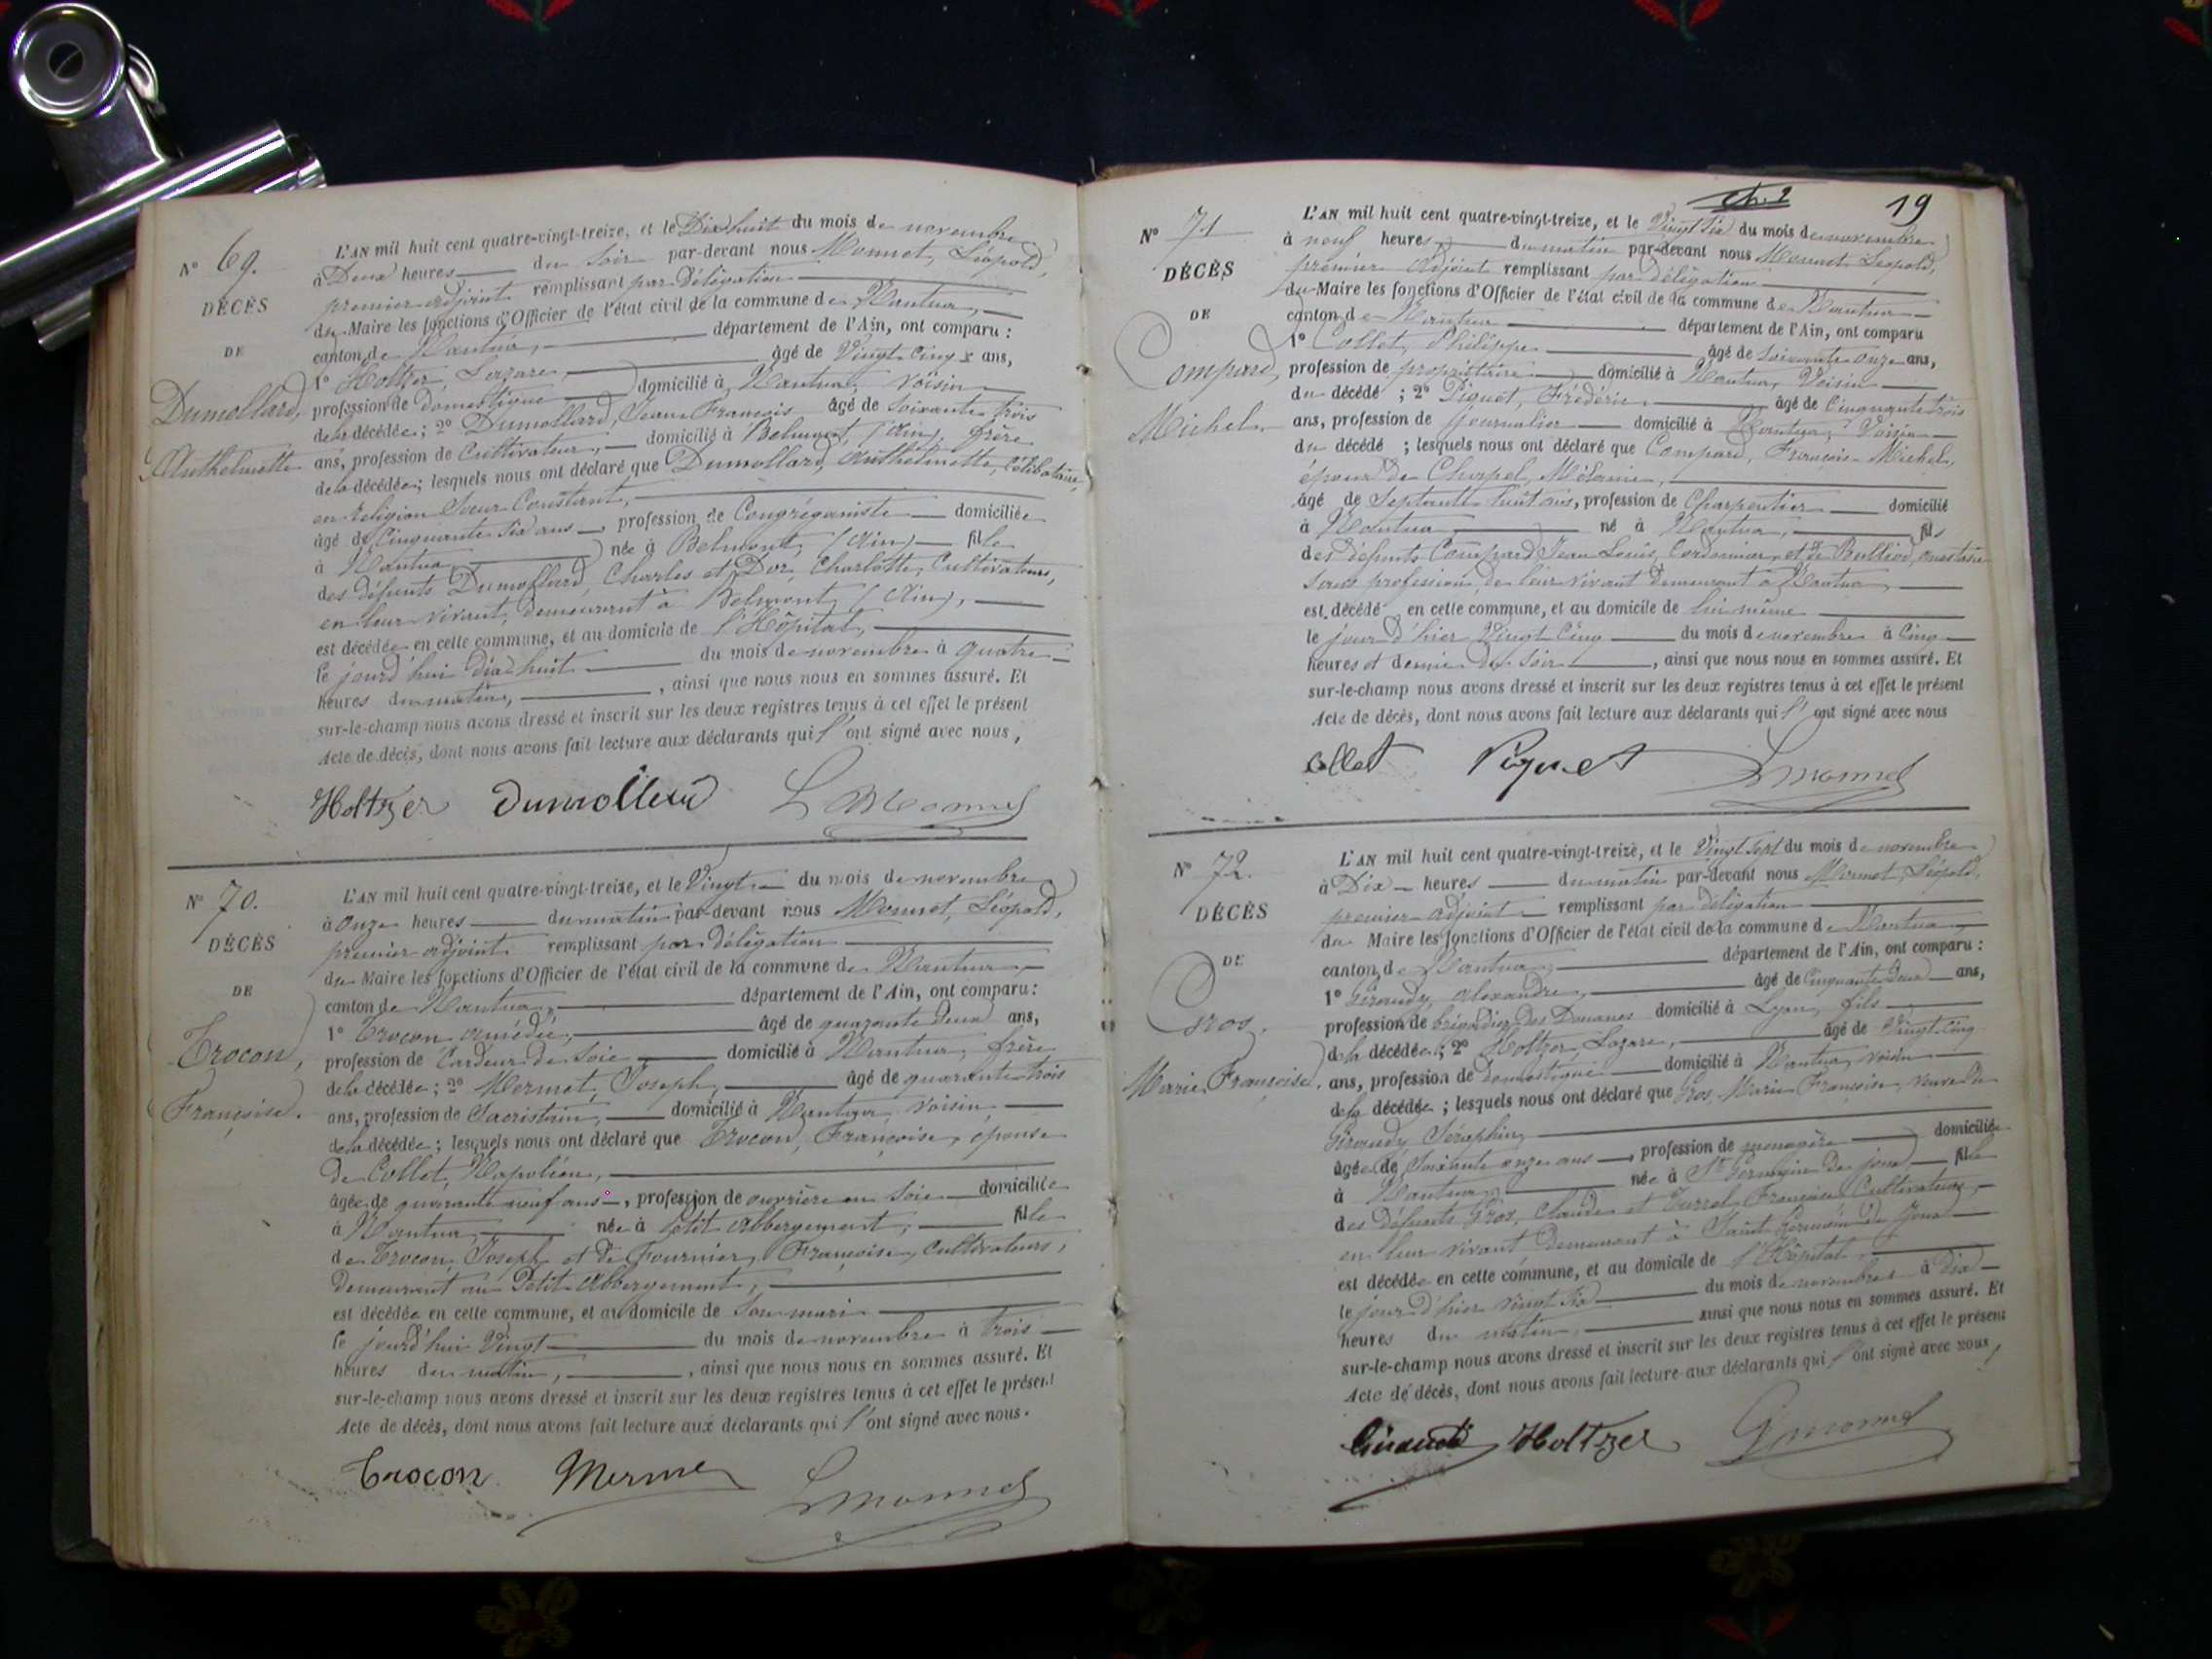 N° 69.
DÉCÈS
DE
Dumollard,
Anthelmette
L'AN mil huit cent quatre-vingt-treize, et le Dix huit du mois de novembre
à Deux heures du soir par-devant nous Monnet, Léopold,
premier adjoint remplissant par délégation
du Maire les fonctions d'Officier de l'état civil de la commune de Nantua,
canton de Nantua, département de l'Ain, ont comparu :
1° Holtzer, Lazare, âgé de Vingt cinq ans,
profession de domestique domicilié à Nantua, voisin
de la décédée ; 2° Dumollard, Jean François âgé de soixante trois
ans, profession de Cultivateur, domicilié à Belmont, (Ain), frère
de la décédée ; lesquels nous ont déclaré que Dumollard, Anthelmette, Célibataire,
en religion Soeur Constant,
âgé de Cinquante six ans, profession de Congréganiste domiciliée
à Nantua, née à Belmont, (Ain) fille
des défunts Dumollard, Charles et Dor, Charlotte, Cultivateurs,
en leur vivant, demeurant à Belmont (Ain),
est décédée en cette commune, et au domicile de l'Hôpital,
le jourd'hui dix huit du mois de novembre à quatre
heures du matin, , ainsi que nous nous en sommes assuré. Et
sur-le-champ nous avons dressé et inscrit sur les deux registres tenus à cet effet le présent
Acte de décès, dont nous avons fait lecture aux déclarants qui l'ont signé avec nous,
Holtzer Dumollard L Monnet
N° 70.
DÉCÈS
DE
Trocon,
Françoise.
L'AN mil huit cent quatre-vingt-treize, et le Vingt du mois de novembre
à onze heures du matin par-devant nous Monnet, Léopold,
premier adjoint remplissant par délégation
du Maire les fonctions d'Officier de l'état civil de la commune de Nantua,
canton de Nantua, département de l'Ain, ont comparu :
1° Trocon Amédée, âgé de quarante deux ans,
profession de Cardeur de Soie domicilié à Nantua, frère
de la décédée ; 2° Mermet, Joseph, âgé de quarante trois
ans, profession de Sacristain, domicilié à Nantua, voisin
de la décédée ; lesquels nous ont déclaré que Trocon, Françoise, épouse
de Collet, Napoléon,
âgée de quarante neuf ans, profession de ouvrière en Soie domiciliée
à Nantua, née à Petit Abbergement, fille
de Trocon, Joseph et de Fournier, Françoise, cultivateurs,
demeurant au Petit Abbergement,
est décédée en cette commune, et au domicile de Son mari
le jourd'hui Vingt du mois de novembre à trois
heures du matin, , ainsi que nous nous en sommes assuré. Et
sur-le-champ nous avons dressé et inscrit sur les deux registres tenus à cet effet le présent
Acte de décès, dont nous avons fait lecture aux déclarants qui l'ont signé avec nous.
Trocon Mermet L Monnet
19
N° 71
DÉCÈS
DE
Compard,
Michel.
L'AN mil huit cent quatre-vingt-treize, et le Vingt Six du mois de novembre
à neuf heures du matin par-devant nous Monnet Léopold,
premier adjoint remplissant par délégation
du Maire les fonctions d'Officier de l'état civil de la commune de Nantua
canton de Nantua département de l'Ain, ont comparu
1° Collet, Philippe âgé de soixante onze ans,
profession de propriétaire domicilié à Nantua, Voisin
du décédé ; 2° Piquet, Frédéric, âgé de cinquante trois
ans, profession de journalier domicilié à Nantua, Voisin
du décédé ; lesquels nous ont déclaré que Compard, François-Michel,
époux de Chapel, Mélanie,
âgé de Septante huit ans, profession de Charpentier domicilié
à Nantua né à Nantua, fils
des défunts Compard Jean Louis, Cordonnier et de Bulliod,
sans profession, de leur vivant demeurant à Nantua
est décédé en cette commune, et au domicile de lui même
le jour d'hier Vingt Cinq du mois de novembre à Cinq
heures et demie du Soir, ainsi que nous nous en sommes assuré. Et
sur-le-champ nous avons dressé et inscrit sur les deux registres tenus à cet effet le présent
Acte de décès, dont nous avons fait lecture aux déclarants qui l'ont signé avec nous
Collet Piquet L Monnet
N° 72.
DÉCÈS
DE
Gros,
Marie Françoise.
L'AN mil huit cent quatre-vingt-treize, et le Vingt Sept du mois de novembre
à Dix heures du matin par-devant nous Monnet, Léopold,
premier adjoint remplissant par délégation
du Maire les fonctions d'Officier de l'état civil de la commune de Nantua
canton de Nantua, département de l'Ain, ont comparu :
1° Giraudy, Alexandre, âgé de Cinquante deux ans,
profession de brigadier des Douanes domicilié à Lyon, fils
de la décédée ; 2° Holtzer Lazare, âgé de Vingt cinq
ans, profession de domestique domicilié à Nantua, voisin
de la décédée ; lesquels nous ont déclaré que Gros, Marie Françoise, veuve de
Giraudy Séraphin,
âgée de Soixante onze ans, profession de ménagère domiciliée
à Nantua, née à St Germain de Joux fille
des défunts Gros, Claude et Turrel, Françoise Cultivateurs,
en leur vivant demeurant à Saint Germain de Joux
est décédée en cette commune, et au domicile de l'Hôpital,
le jour d'hier vingt Six du mois de novembre à dix
heures du matin, ainsi que nous nous en sommes assuré. Et
sur-le-champ nous avons dressé et inscrit sur les deux registres tenus à cet effet le présent
Acte de décès, dont nous avons fait lecture aux déclarants qui l'ont signé avec nous,
Giraudi Holtzer L Monnet